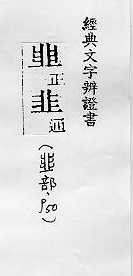 經典文字辨證書
韭正
通
(韭部、p50)